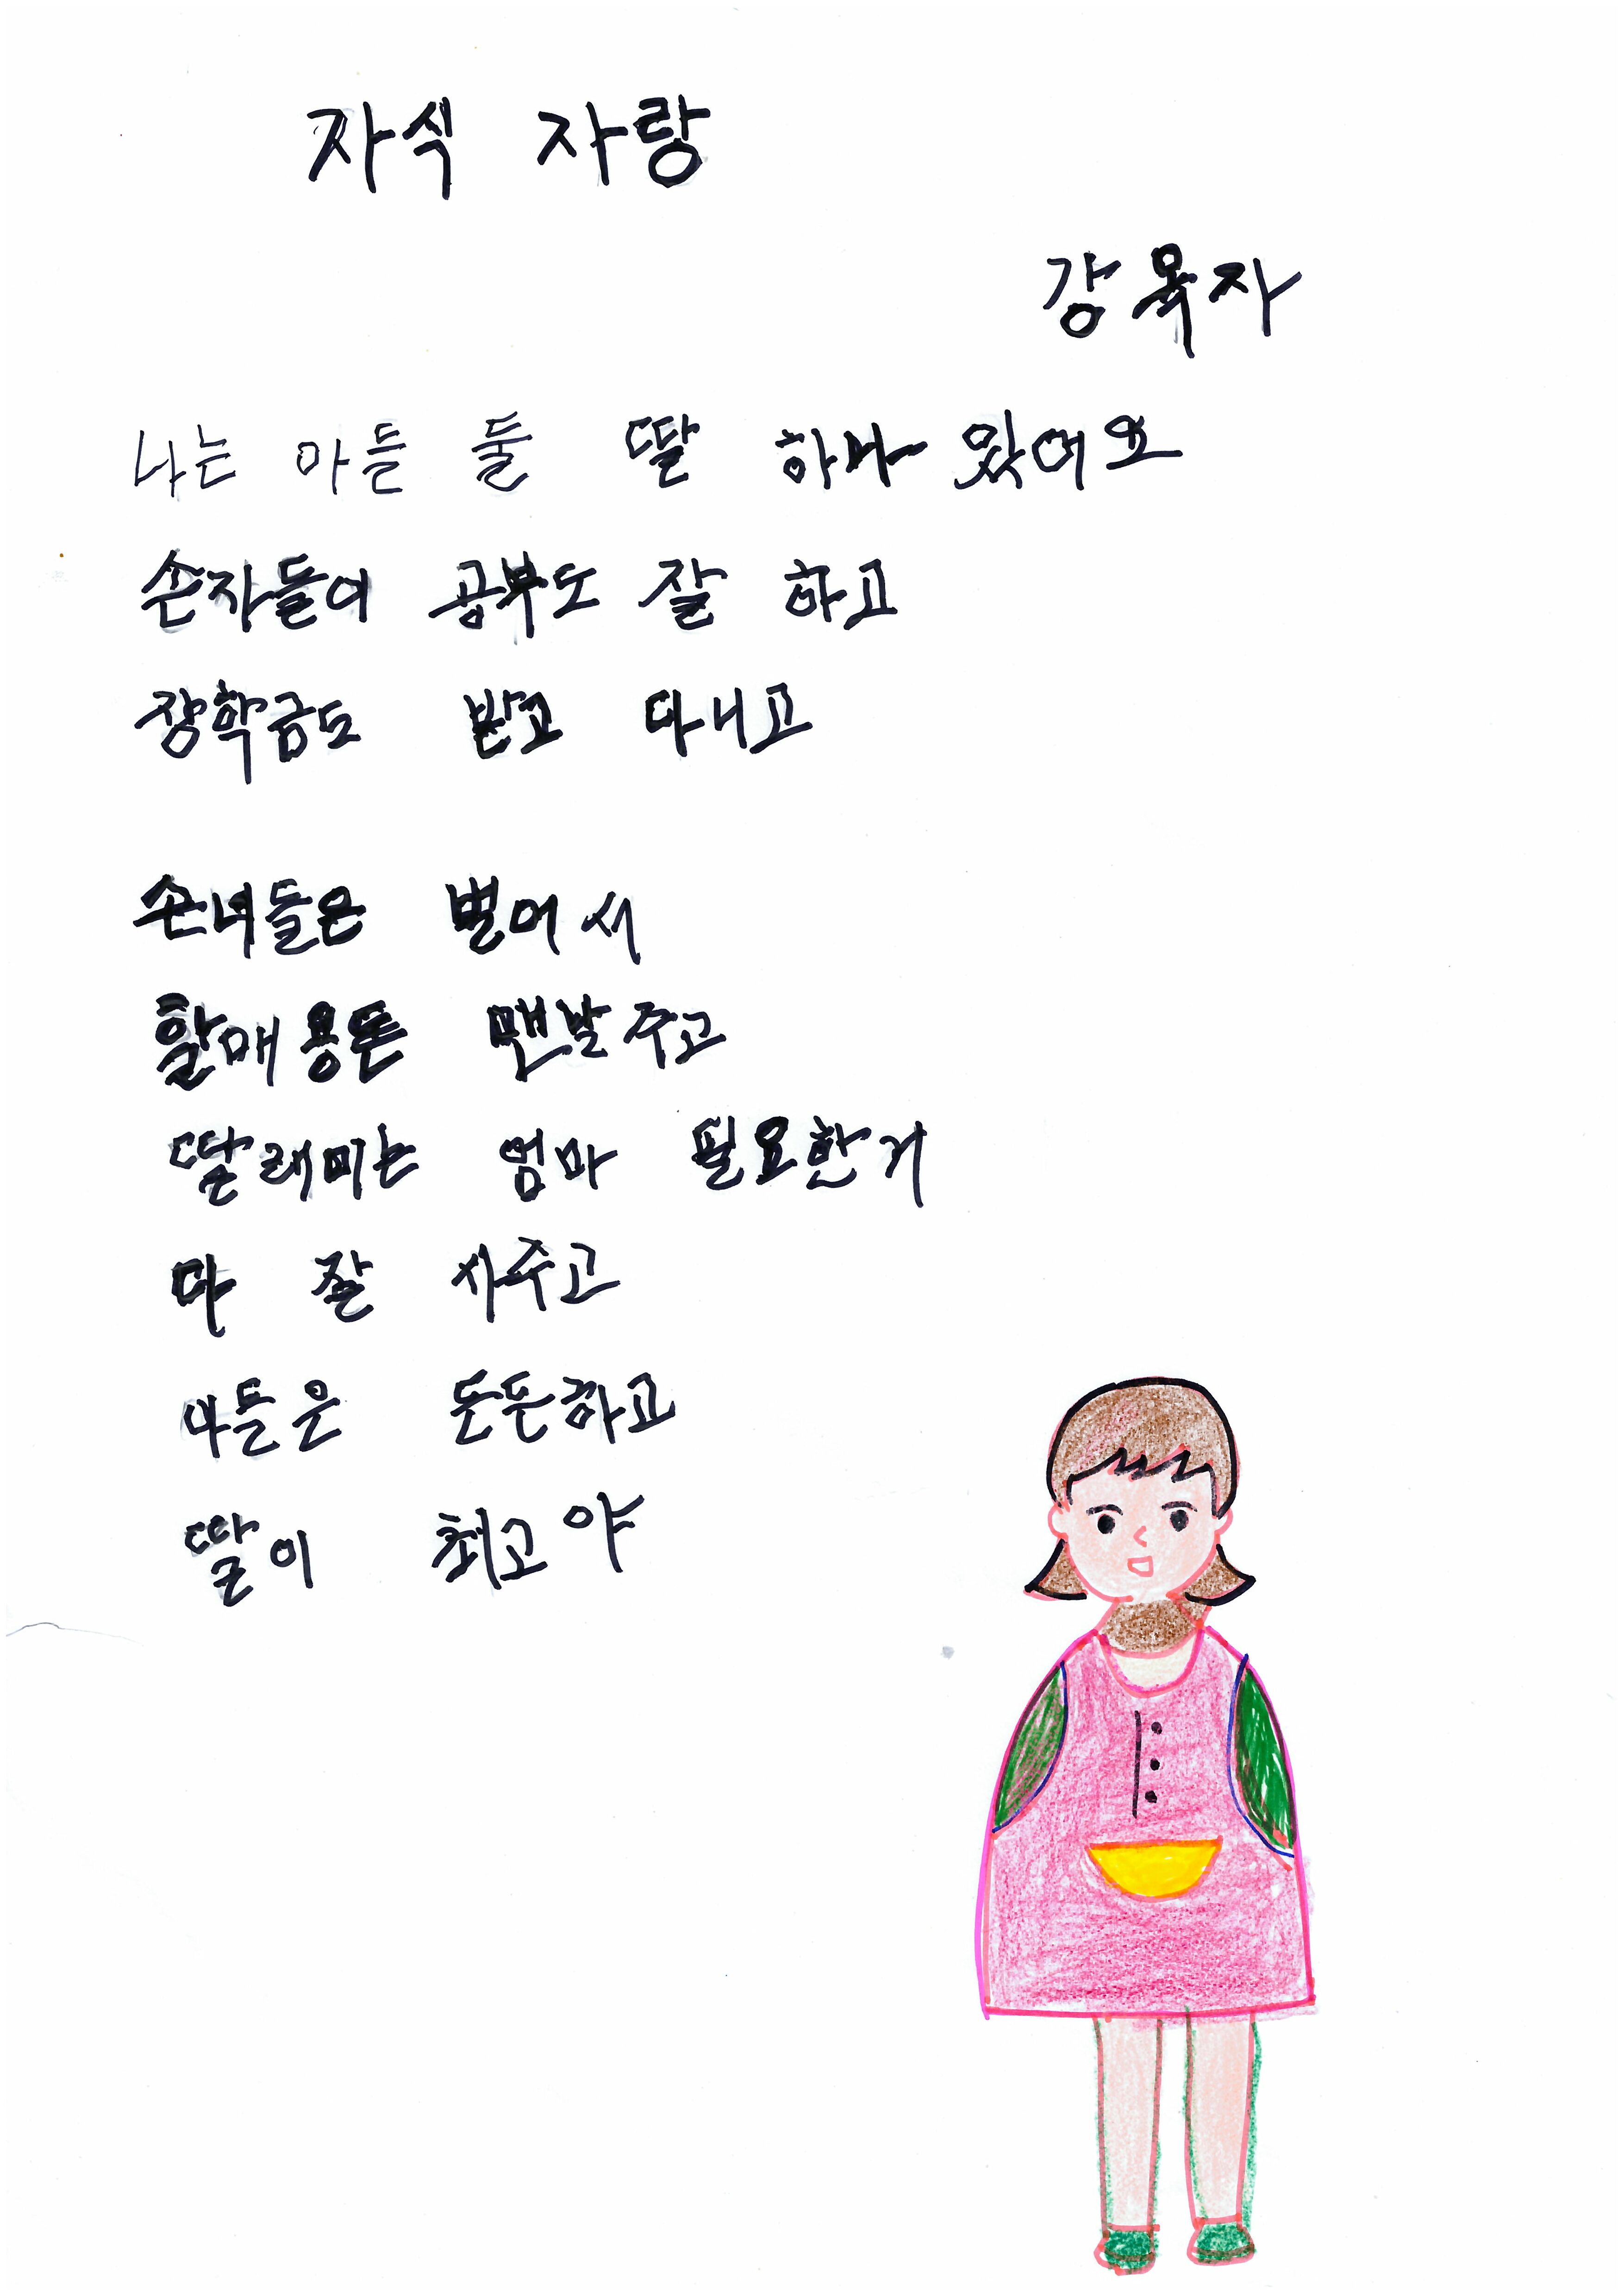 자식 자랑
강옥자
나는 아들 둘 딸 하나 있어요
손자들이 공부도 잘 하고
장학금도 받고 다니고
손녀들은 벌어서
할매용돈 맨날주고
딸래미는 엄마 필요한거
다 잘 사주고
아들은 든든하고
딸이 최고야